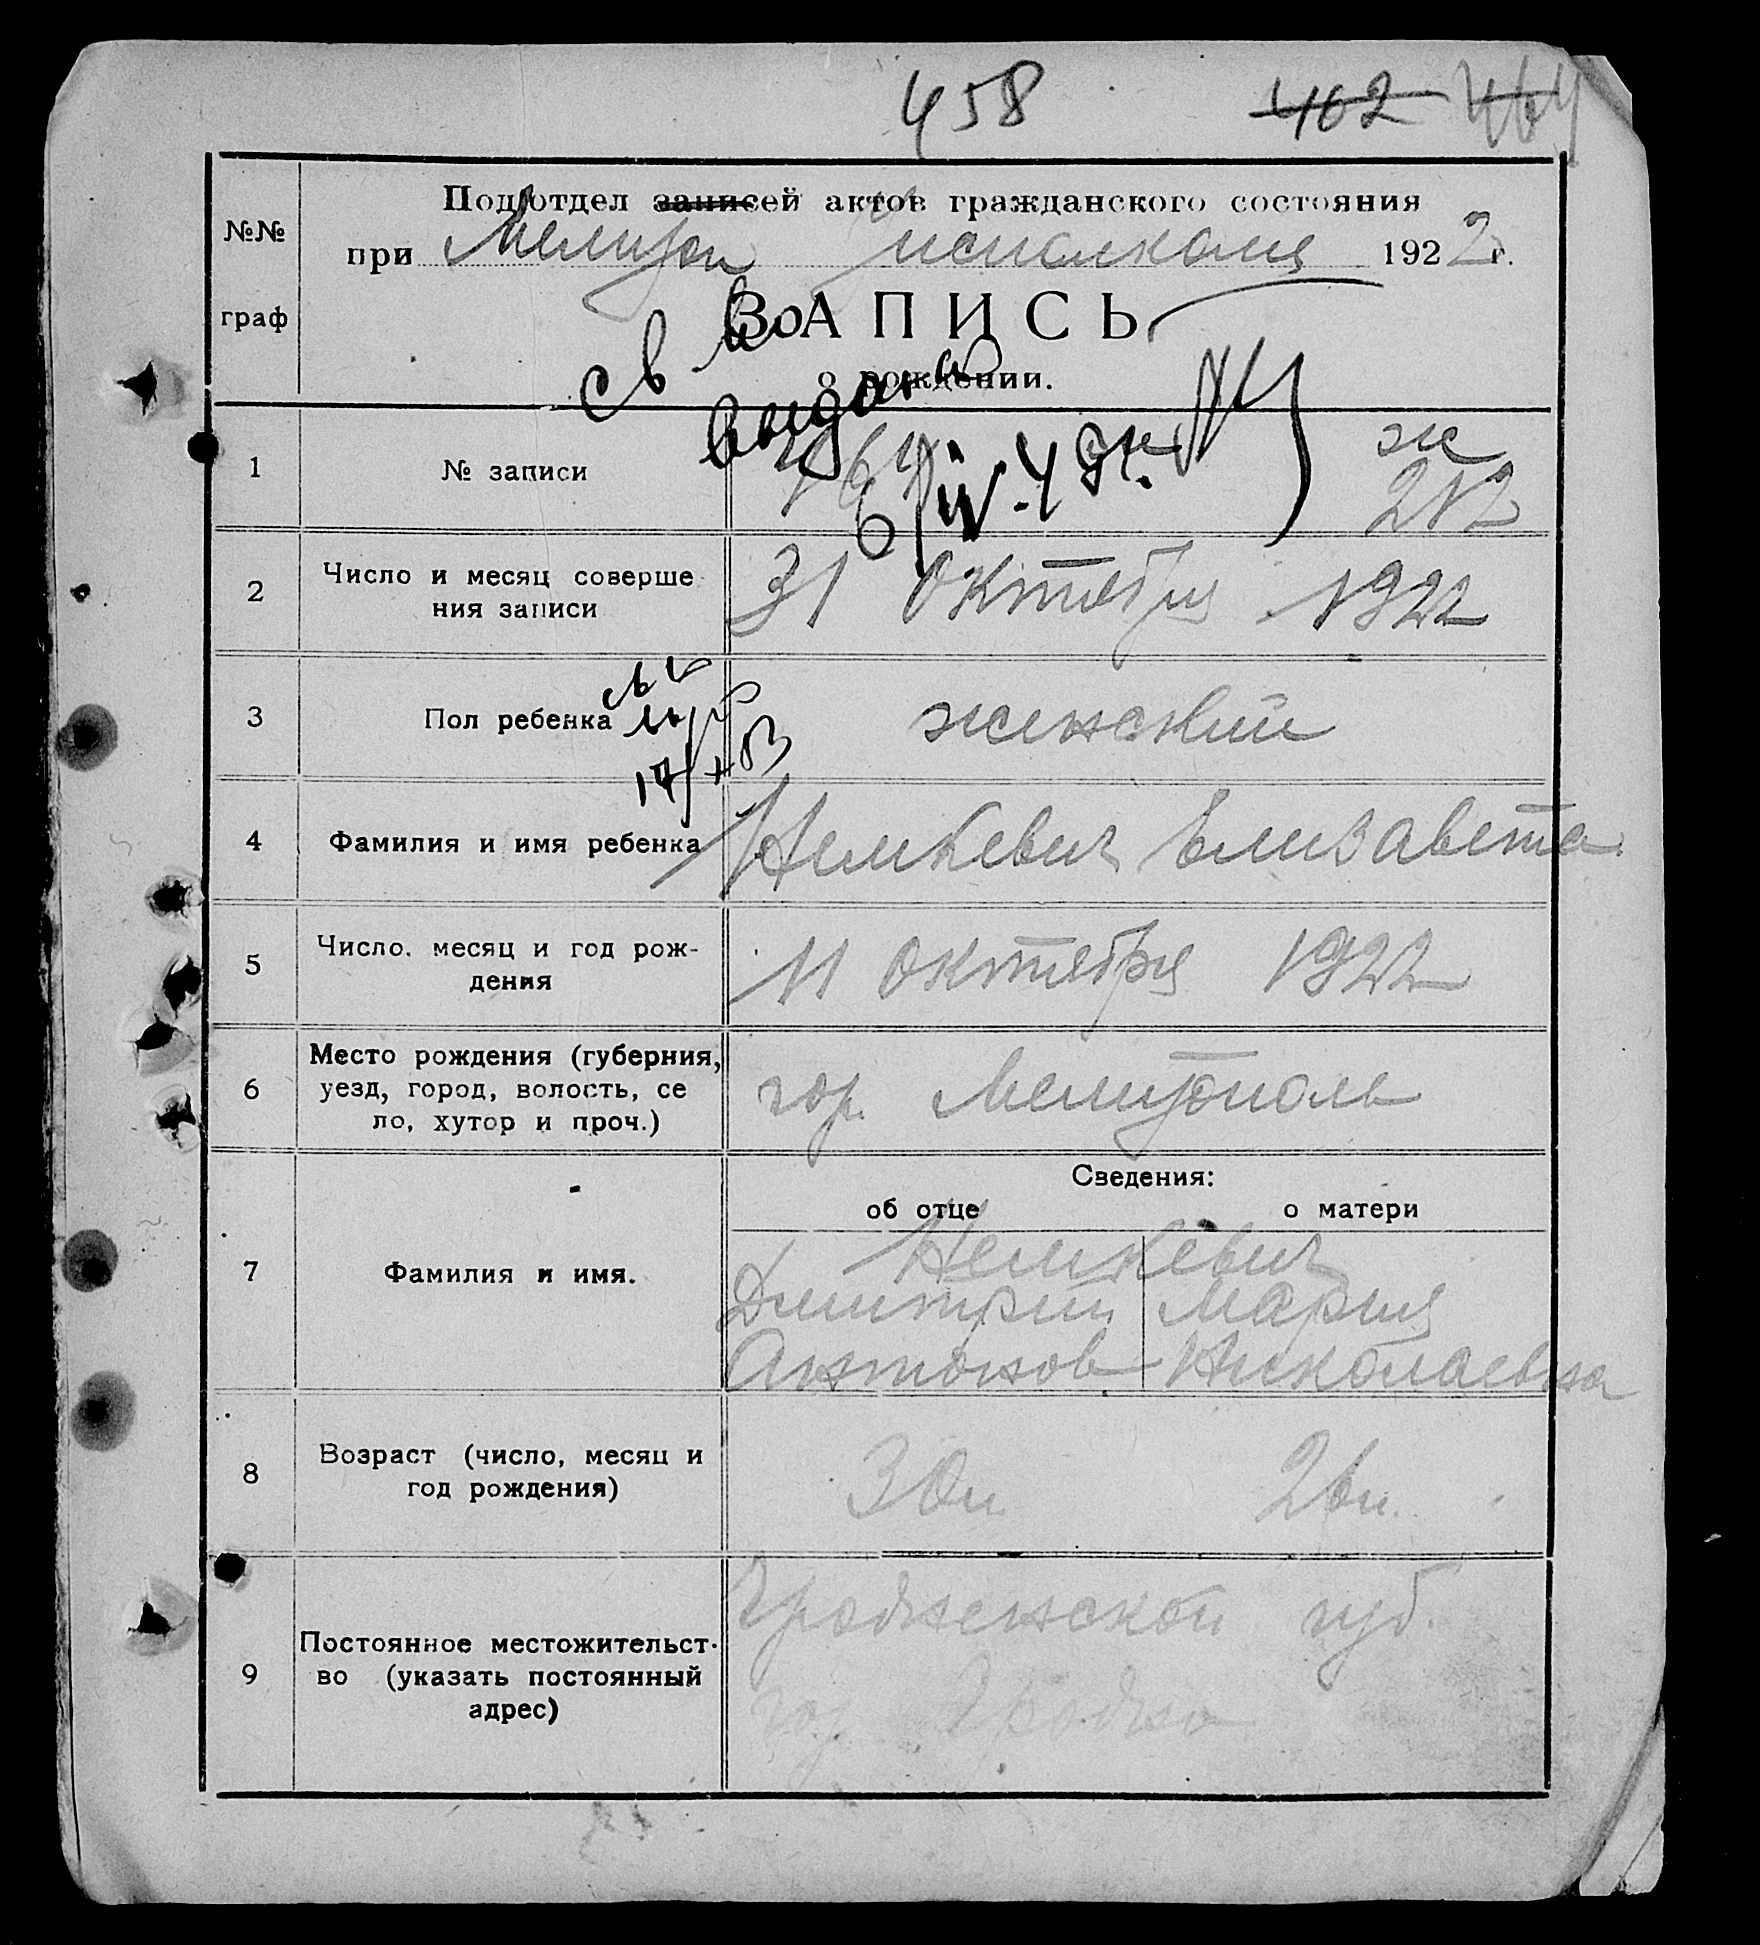 458 402 464
№№
граф
Подотдел записей актов гражданского состояния
при исполкоме 1922 г.
ЗАПИСЬ
о рождении.
св во
выдано
1 № записи 464 ж
212
2 Число и месяц соверше
ния записи 31 Октября 1922
3 Пол ребенка женский
4 Фамилия и имя ребенка Немкевич Елизавета
5 Число, месяц и год рож-
дения 11 Октября 1922
6 Место рождения (губерния,
уезд, город, волость, се
ло, хутор и проч.) гор. Мелитополь
Сведения:
об отце о матери
7 Фамилия и имя. Немкевич
Дмитрий Мария
Антонов Николаевна
8 Возраст (число, месяц и
год рождения) 30л. 26л.
9 Постоянное местожительст-
во (указать постоянный
адрес) Гродненской губ.
гор. Гродно